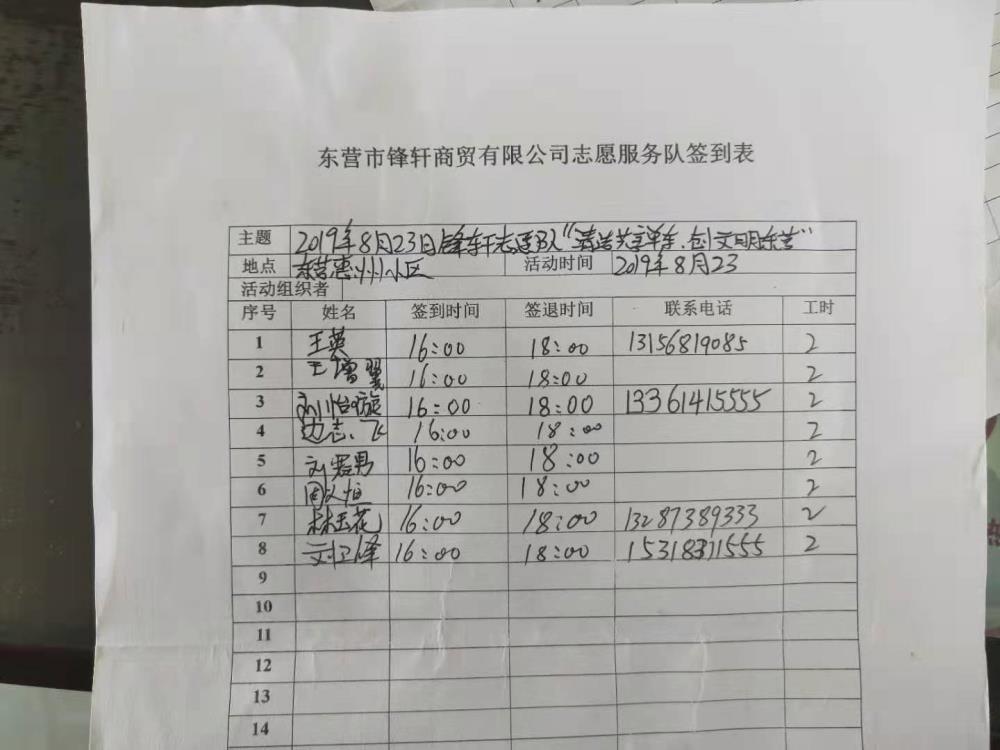 东营市锋轩商贸有限公司志愿服务队签到表
主题 2019年8月23日锋轩志愿队"清洁共享单车.创文明东营"
地点 东营惠州小区 活动时间 2019年8月23
活动组织者
序号 姓名 签到时间 签退时间 联系电话 工时
1 王英 16:00 18:00 13156819085 2
2 王增翼 16:00 18:00 2
3 刘怡璇 16:00 18:00 13361415555 2
4 边志飞 16:00 18:00 2
5 刘 男 16:00 18:00 2
6 周 恒 16:00 18:00 2
7 林玉花 16:00 18:00 13287389333 2
8 刘卫泽 16:00 18:00 15318371555 2
9
10
11
12
13
14